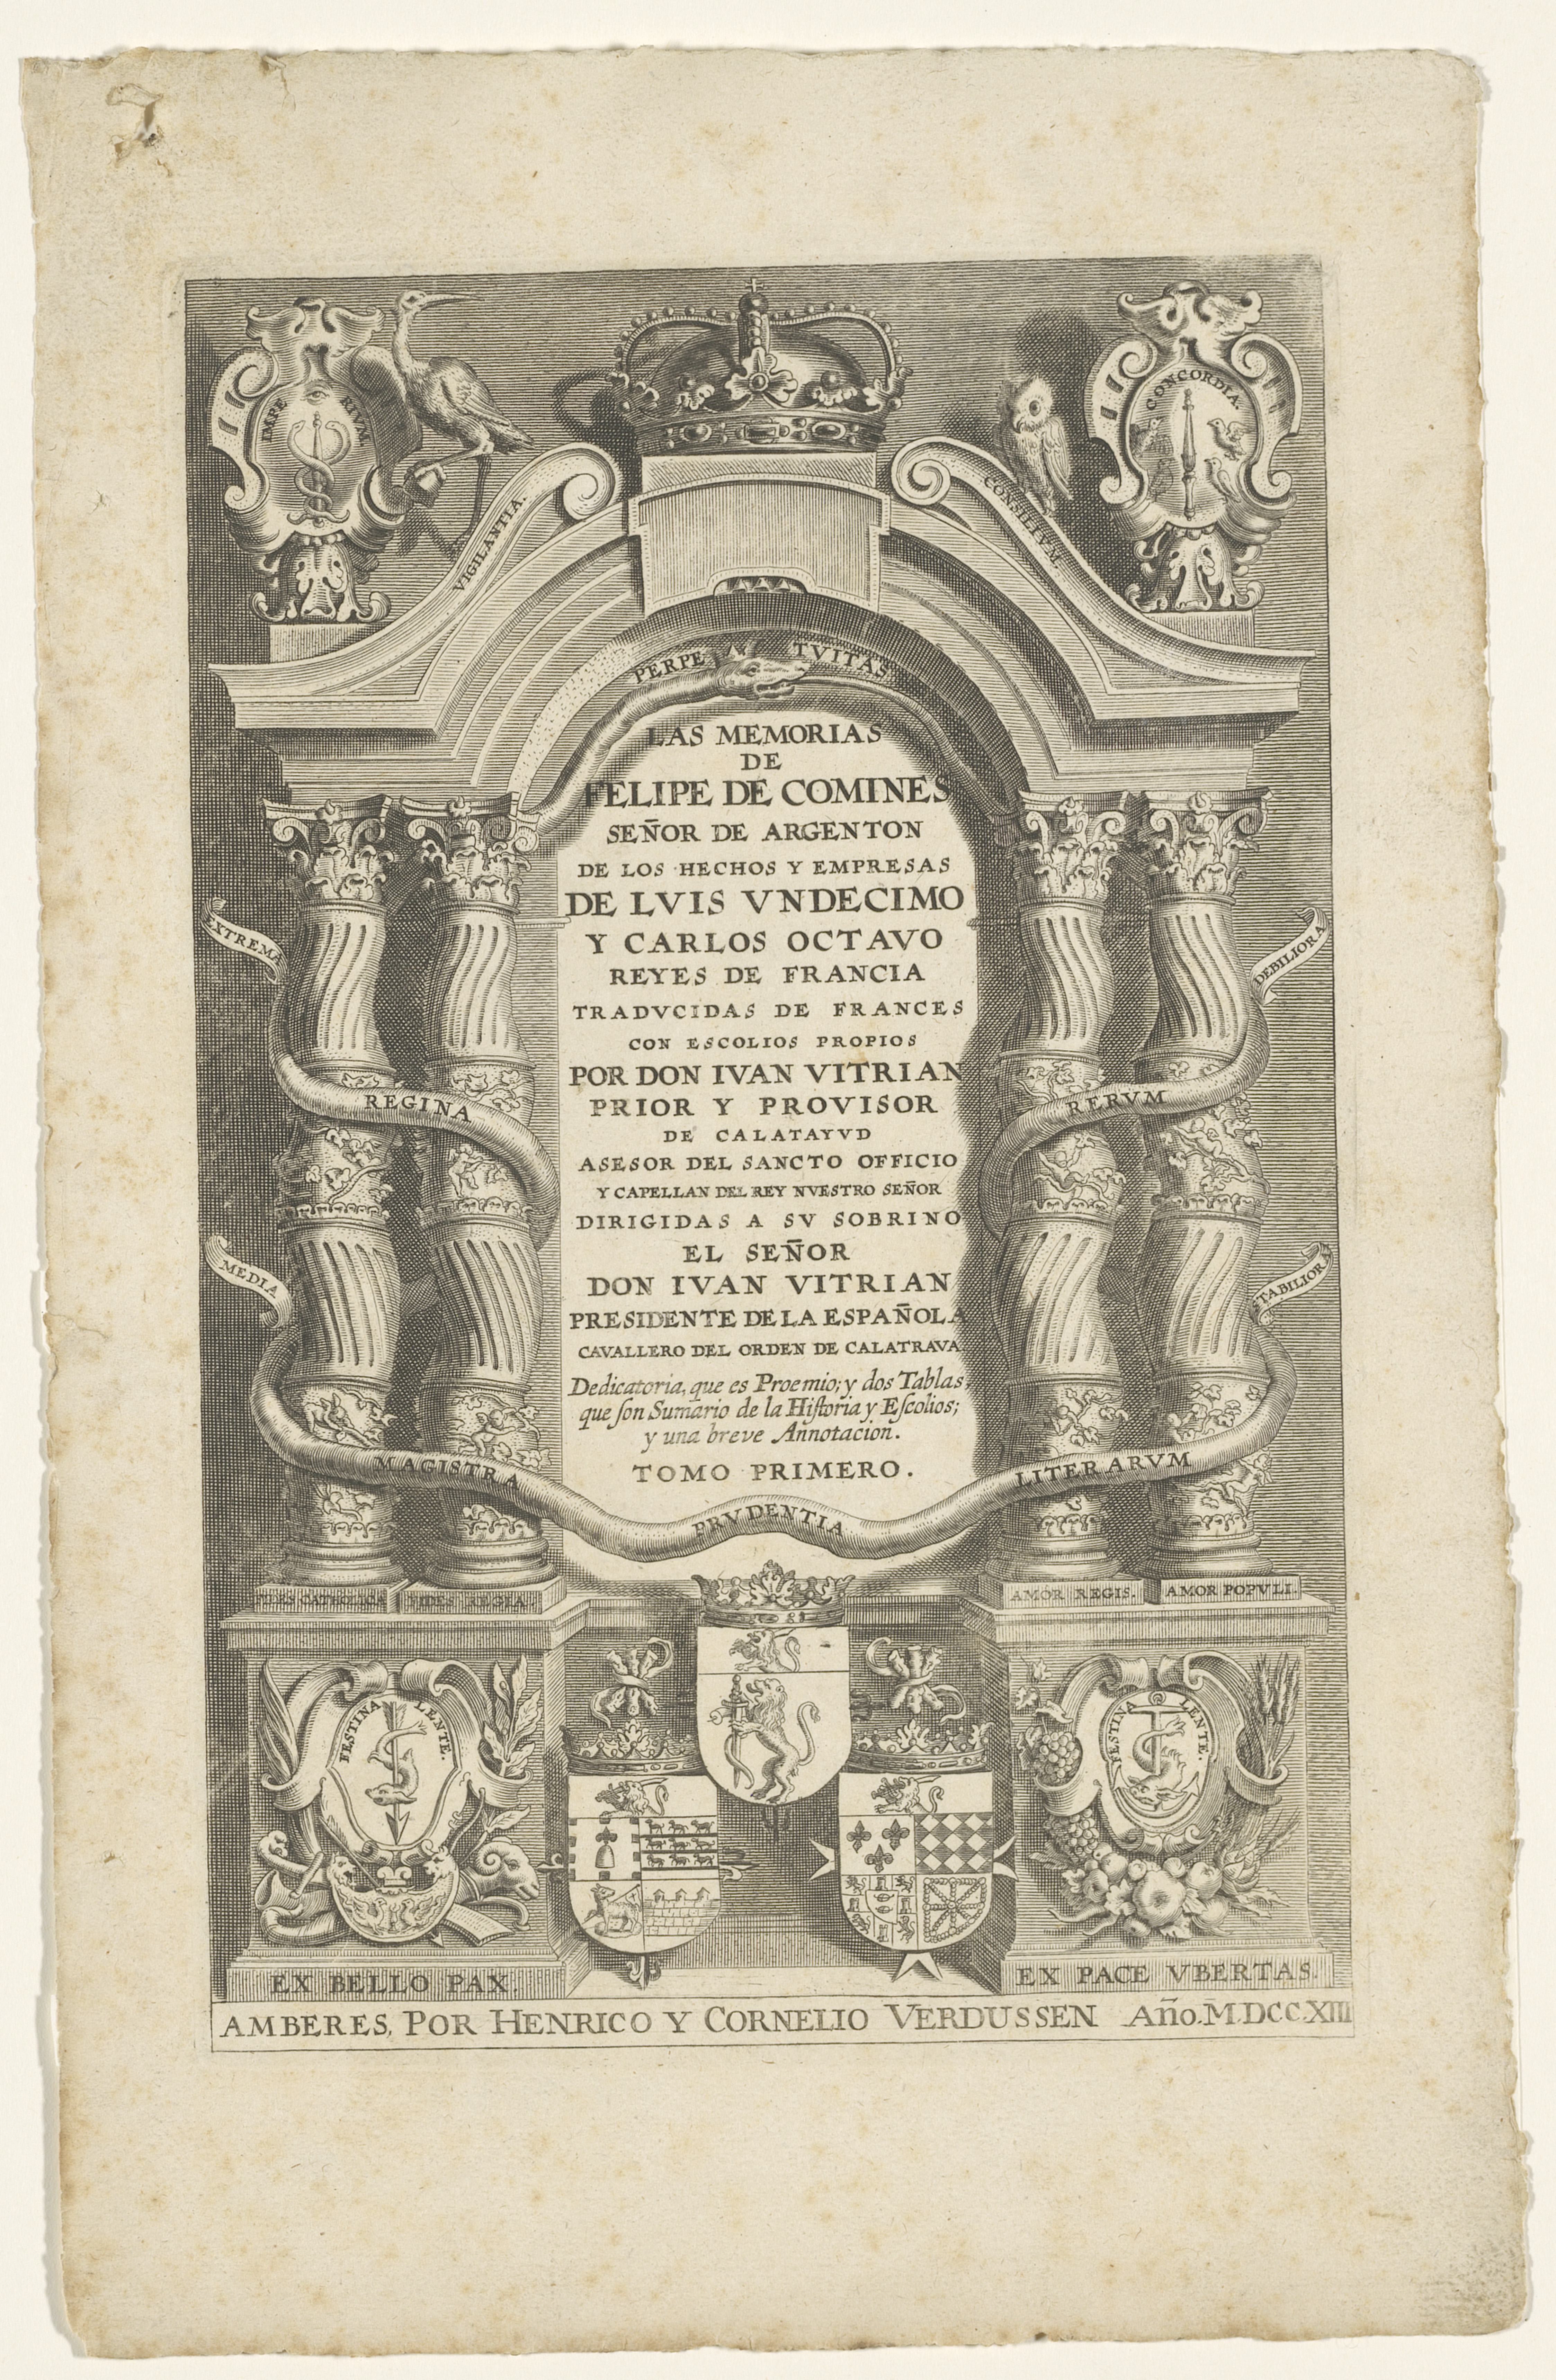 IMPERIVM
CONCORDIA.
VIGILANTIA.
CONSILIVM.
PERPETVITAS
LAS MEMORIAS
DE
FELIPE DE COMINES
SEÑOR DE ARGENTON
DE LOS HECHOS Y EMPRESAS
DE LVIS VNDECIMO
Y CARLOS OCTAVO
REYES DE FRANCIA
TRADVCIDAS DE FRANCES
CON ESCOLIOS PROPIOS
POR DON IVAN VITRIAN
PRIOR Y PROVISOR
DE CALATAYVD
ASESOR DEL SANCTO OFFICIO
Y CAPELLAN DEL REY NVESTRO SEÑOR
DIRIGIDAS A SV SOBRINO
EL SEÑOR
DON IVAN VITRIAN
PRESIDENTE DE LA ESPAÑOLA
CAVALLERO DEL ORDEN DE CALATRAVA
Dedicatoria, que es Proemio; y dos Tablas,
que ſon Sumario de la Hiſtoria y Eſcolios;
y una breve Annotacion.
TOMO PRIMERO.
EXTREMA
DEBILIORA
REGINA
RERVM
MEDIA
STABILIORA
MAGISTRA
PRVDENTIA
LITERARVM
FIDES CATHOLICA
FIDES REGIA.
AMOR REGIS.
AMOR POPVLI.
FESTINA LENTE.
FESTINA LENTE.
EX BELLO PAX.
EX PACE VBERTAS.
AMBERES, POR HENRICO Y CORNELIO VERDUSSEN Año.M.DCC.XIII